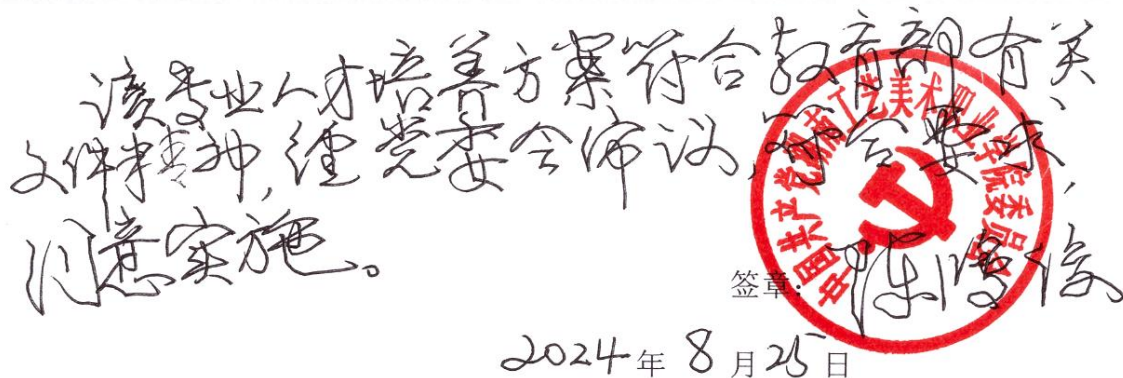 该专业人才培养方案符合教育部有关
文件精神,经党委会审议,符合要求,
同意实施。
中国共产党湖南工艺美术职业学院委员会
签章:
2024年8月25日